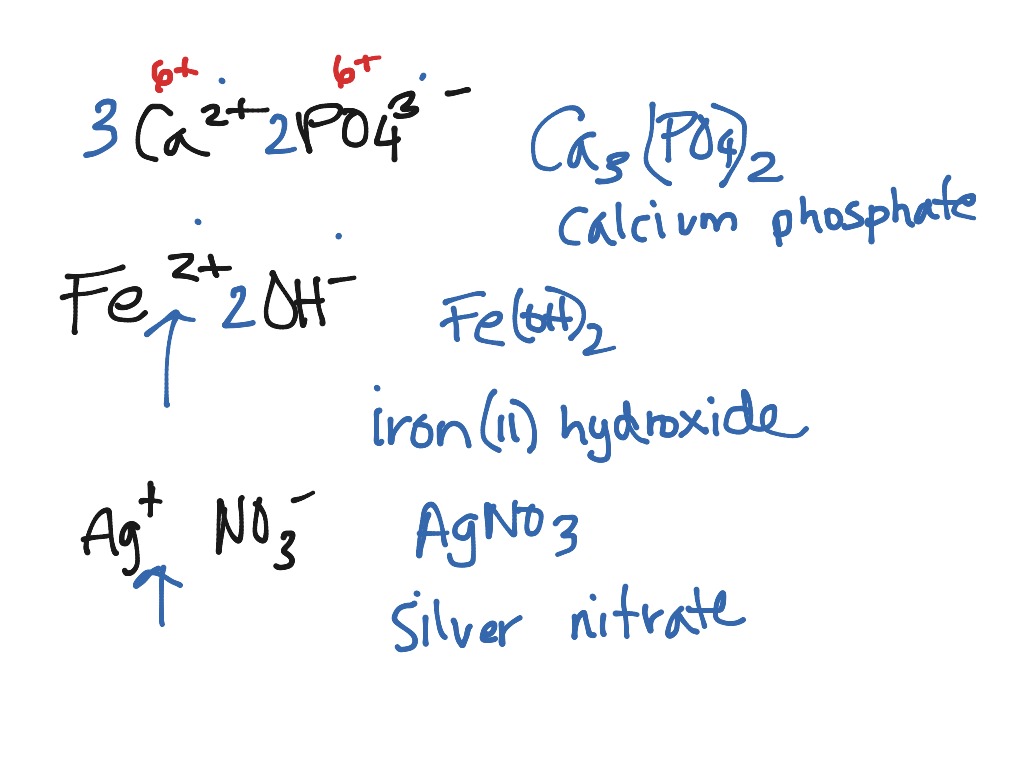 6+ 6+
3 Ca²⁺ 2 PO4³⁻
Ca₃(PO₄)₂
calcium phosphate
Fe²⁺ 2 OH⁻
Fe(OH)₂
iron (II) hydroxide
Ag⁺ NO₃⁻
AgNO₃
silver nitrate